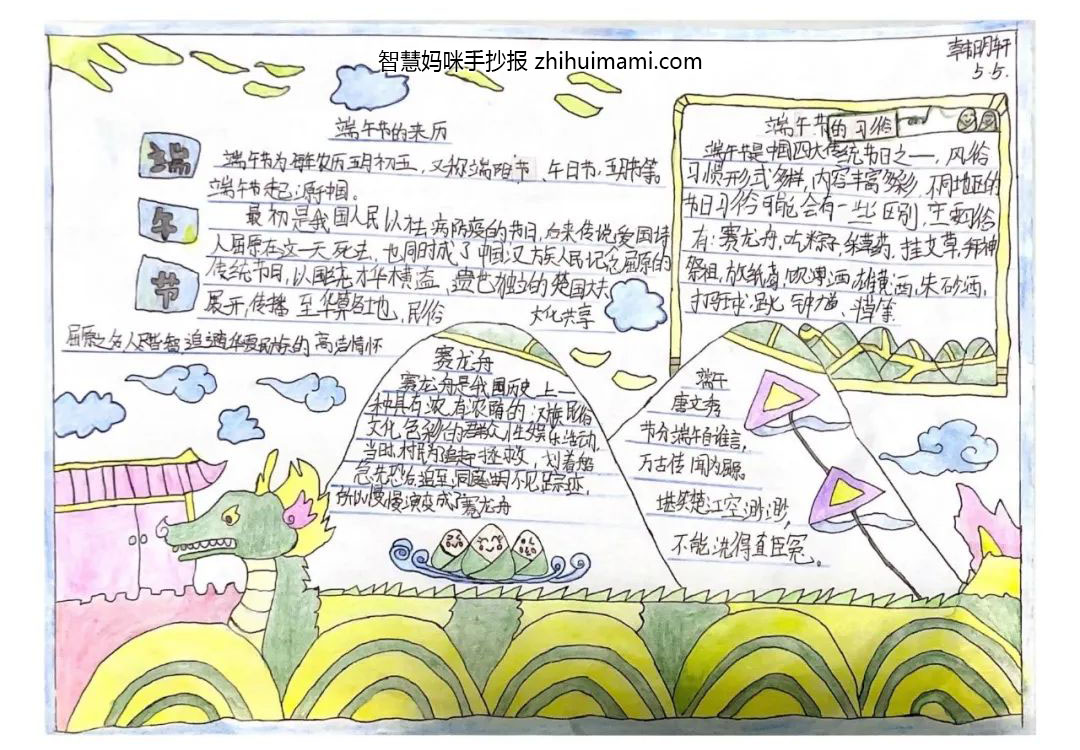 智慧妈咪手抄报 zhihuimami.com
5.5.
端午节
端午节的来历
端午节为每年农历五月初五，又称端阳节、午日节，五月节等
端午节起源中国。
最初是我国人民以祛病防疫的节日，后来传说爱国诗
人屈原在这一天死去，也同时成了中国汉族人民记念屈原的
传统节日，以围绕才华横溢、遗世独立的楚国大夫
展开，传播至华夏各地，民俗
文化共享
屈原之名人尽皆知 追 华夏民族的高洁情怀
端午节的习俗
端午节是中国四大传统节日之一，风俗
习惯形式多样，内容丰富多彩，不同地区的
节日习俗可能会有一些区别，主要俗
有：赛龙舟，吃粽子，采草药，挂艾草，拜神
祭祖，放纸鸢，饮薄酒，雄黄酒，朱砂酒，
打马球，跳钟馗、等
赛龙舟
赛龙舟是我国历史上一
种具有浓有浓郁的汉族民俗
文化色彩的群众性娱乐活动，
当时村民为追赶拯救，划着船
急 追至洞庭湖不见踪迹，
所以慢慢演变成了赛龙舟
端午
唐文秀
节分端午自谁言，
万古传闻为屈原。
堪笑楚江空渺渺，
不能洗得直臣冤。